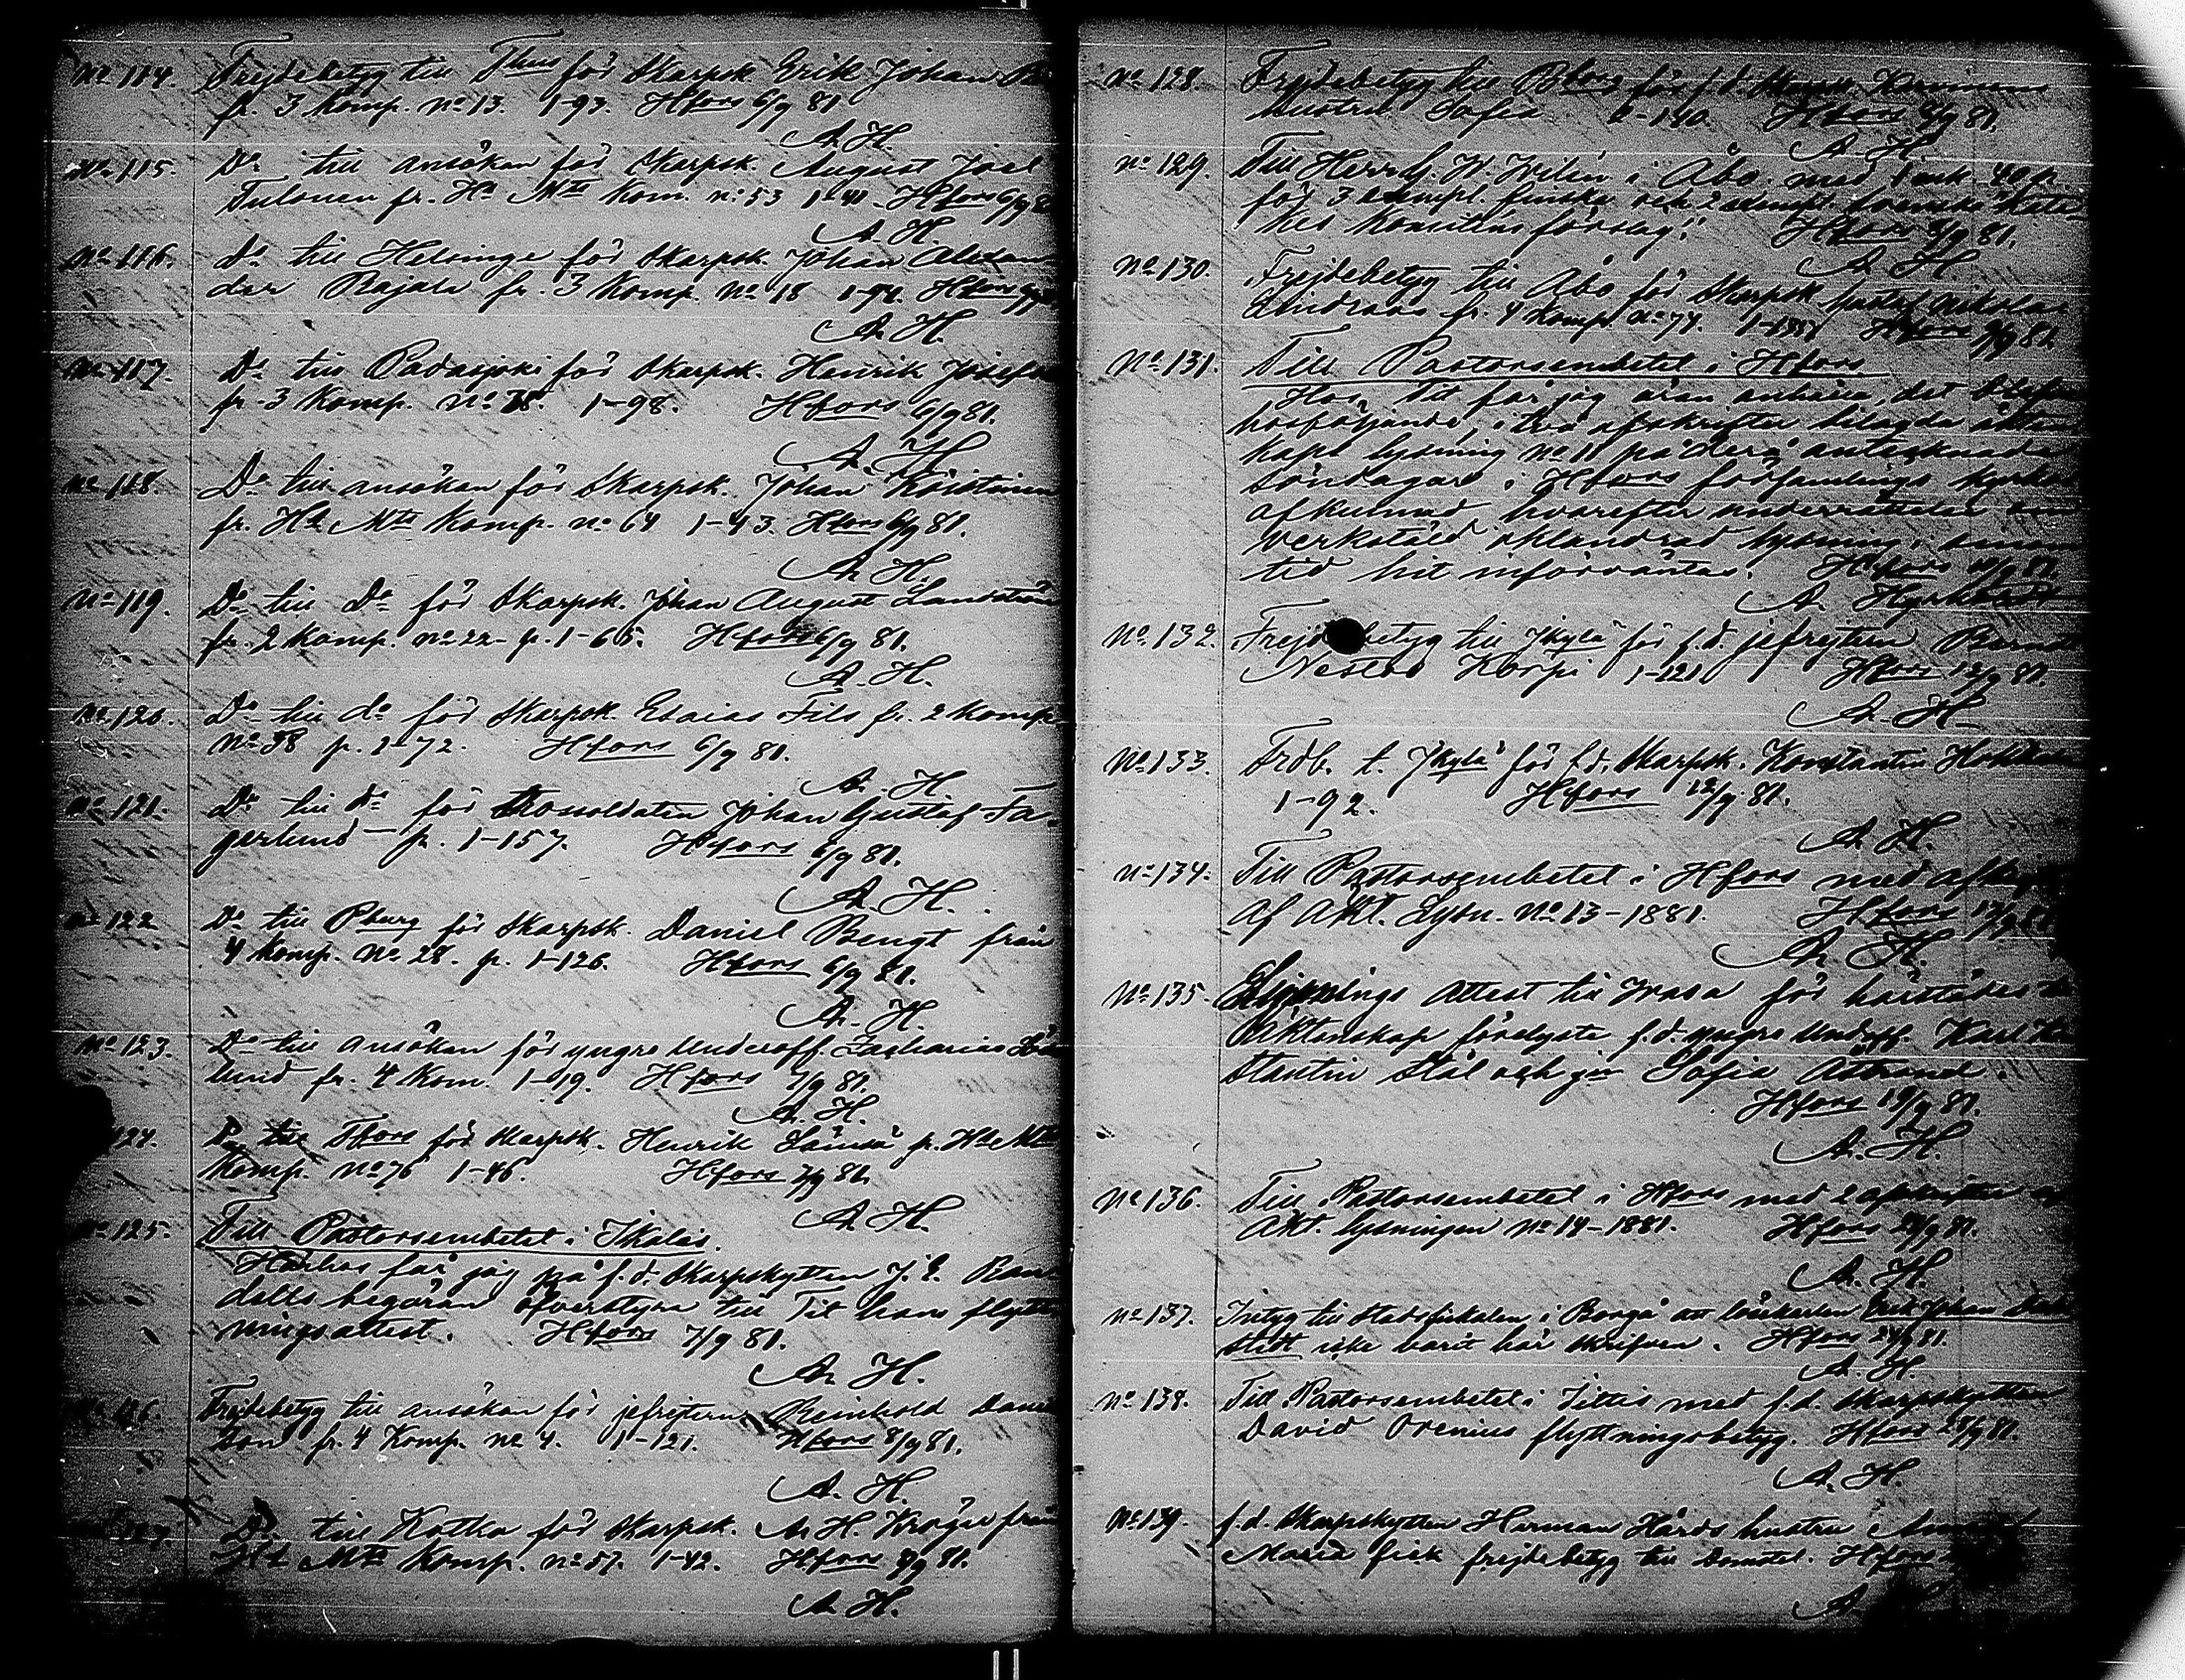 No 114. Frejdebetyg till Thus för Skarpsk Erik Johan
fr. 3 Komp. No 13. 1-93. Hfors 6/9 81
A. H.
No 115. Do till ansökan för Skarpsk. August Joel
Tulonen fr. Hs Mts Kom. n: 53 1-40. Hfors 6/9 8
A. H.
No 116. Do till Helsinge för Skarpsk. Johan Alexan
der Rajala fr. 3 Komp. No 18 1-94. Hfors
A. H.
No 117. Do till Padasjoki för Skarpsk. Henrik Josefs
fr. 3 Komp. No 1-98. Hfors 6/9 81.
A. H.
No 118. Do till ansökan för Skarpsk. Johan
fr. Hs Mts Komp. no 64 1-43. Hfors 6/9 81.
A. H.
No 119. Do till Do för Skarpsk. Johan August
fr. 2 Komp. no 22- p. 1-65. Hfors 6/9 81.
A. H.
No 120. Do till do för Skarpsk. Esaias Fils fr. 2 Komp
No 38 p. 1-72. Hfors 6/9 81.
A. H.
No 121. Do till do för Trossoldaten Johan Gustaf Fa-
gerlund — p. 1-157. Hfors 6/9 81.
A. H.
No 122 Do till Pburg för Skarpsk. Daniel Bengt från
4 Komp. No 28. p. 1-126. Hfors 6/9 81.
A. H.
No 123. Do till ansökan för yngre Underoff. Zacharias
lund fr. 4 Kom. 1-119. Hfors 7/9 81.
A. H.
124. Do till Tfors för Skarpsk. Henrik fr. Hs Mts
Komp. No 76 1-46. Hfors 7/9 81.
A. H.
No 125. Till Pastorsembetet i Ikalis.
Härhos får jag på f. d. Skarpskytten J. E. Ran
dells begäran öfverstyra till Tit hans flytt
ningsattest. Hfors 7/9 81.
A. H.
Frejdebetyg till ansökan för jefrejtern Reinhold Daniel
son fr. 4 Komp. no 4. 1-121. Hfors 8/9 81.
A. H.
127. Do till Kotka för Skarpsk. A. H. Kröger från
Hs Mts Komp. no 57. 1-42. Hfors 8/9 81.
A. H.
No 128. Frejdebetyg till för f. d. Skarpsk.
hustru Sofia 1-140. Hfors 8/9 81.
A. H.
No 129. Till Herr G. W. Wilén i Åbo med 1 mk 40 p.
för 3 exempl. finska och 2 exempl. svenska Kate
kes Komiténs förslag. Hfors 8/9 81.
A. H.
No 130. Frejdebetyg till Åbo för Skarpsk Gustaf Nikolai
fr. 4 Komp. no 74. Hfors 9/9 81.
No 131. Till Pastorsembetet i Hfors
Hos Tit får jag äran anhålla, det
hosföljande, i två afskrifter bilagda äkten
skaps lysning No 11 på derå antecknade
söndagar i Hfors församlings kyrka
afkunnad hvarefter underrättelse om
verkstäld oklandrad lysning, i sinom
tid hit införväntas. Hfors 81.
A.
No 132. Frejdebetyg till Jkylä för f. d. jefrejtern
Nestor Korpi 1-121 Hfors 12/9 81.
A. H.
No 133. Frdb. t. Jkylä för f. d. Skarpsk. Konstantin
1-92. Hfors 12/9 81.
A. H.
No 134. Till Pastorsembetet i Hfors med
af Äkt. Lysn. No 13-1881. Hfors
A. H.
No 135. Attest till Wasa för härstädes till
Äktenskap förelyste f. d. yngre Underoff. Karl Kon
stantin Stål och pn Sofia Åstrand.
Hfors 19/9 81.
A. H.
No 136. Till Pastorsembetet i Hfors med 2 afskrifter af
Äkt. lysningen No 14-1881. Hfors 24/9 81.
A. H.
No 137. Intyg till Stadsfiskalen i Borgå att lösdrifvaren Erik Johan
stedt icke varit här skrifven. Hfors 24/9 81.
A. H.
No 138. Till Pastorsembetet i Iittis med f. d. Skarpskytten
David Orenius flyttningsbetyg. Hfors 28/9 81.
A. H.
No 139. f. d. Skarpskytten Herman Hårds hustru Anna
Maria fick frejdebetyg till Domstol. Hfors
A.